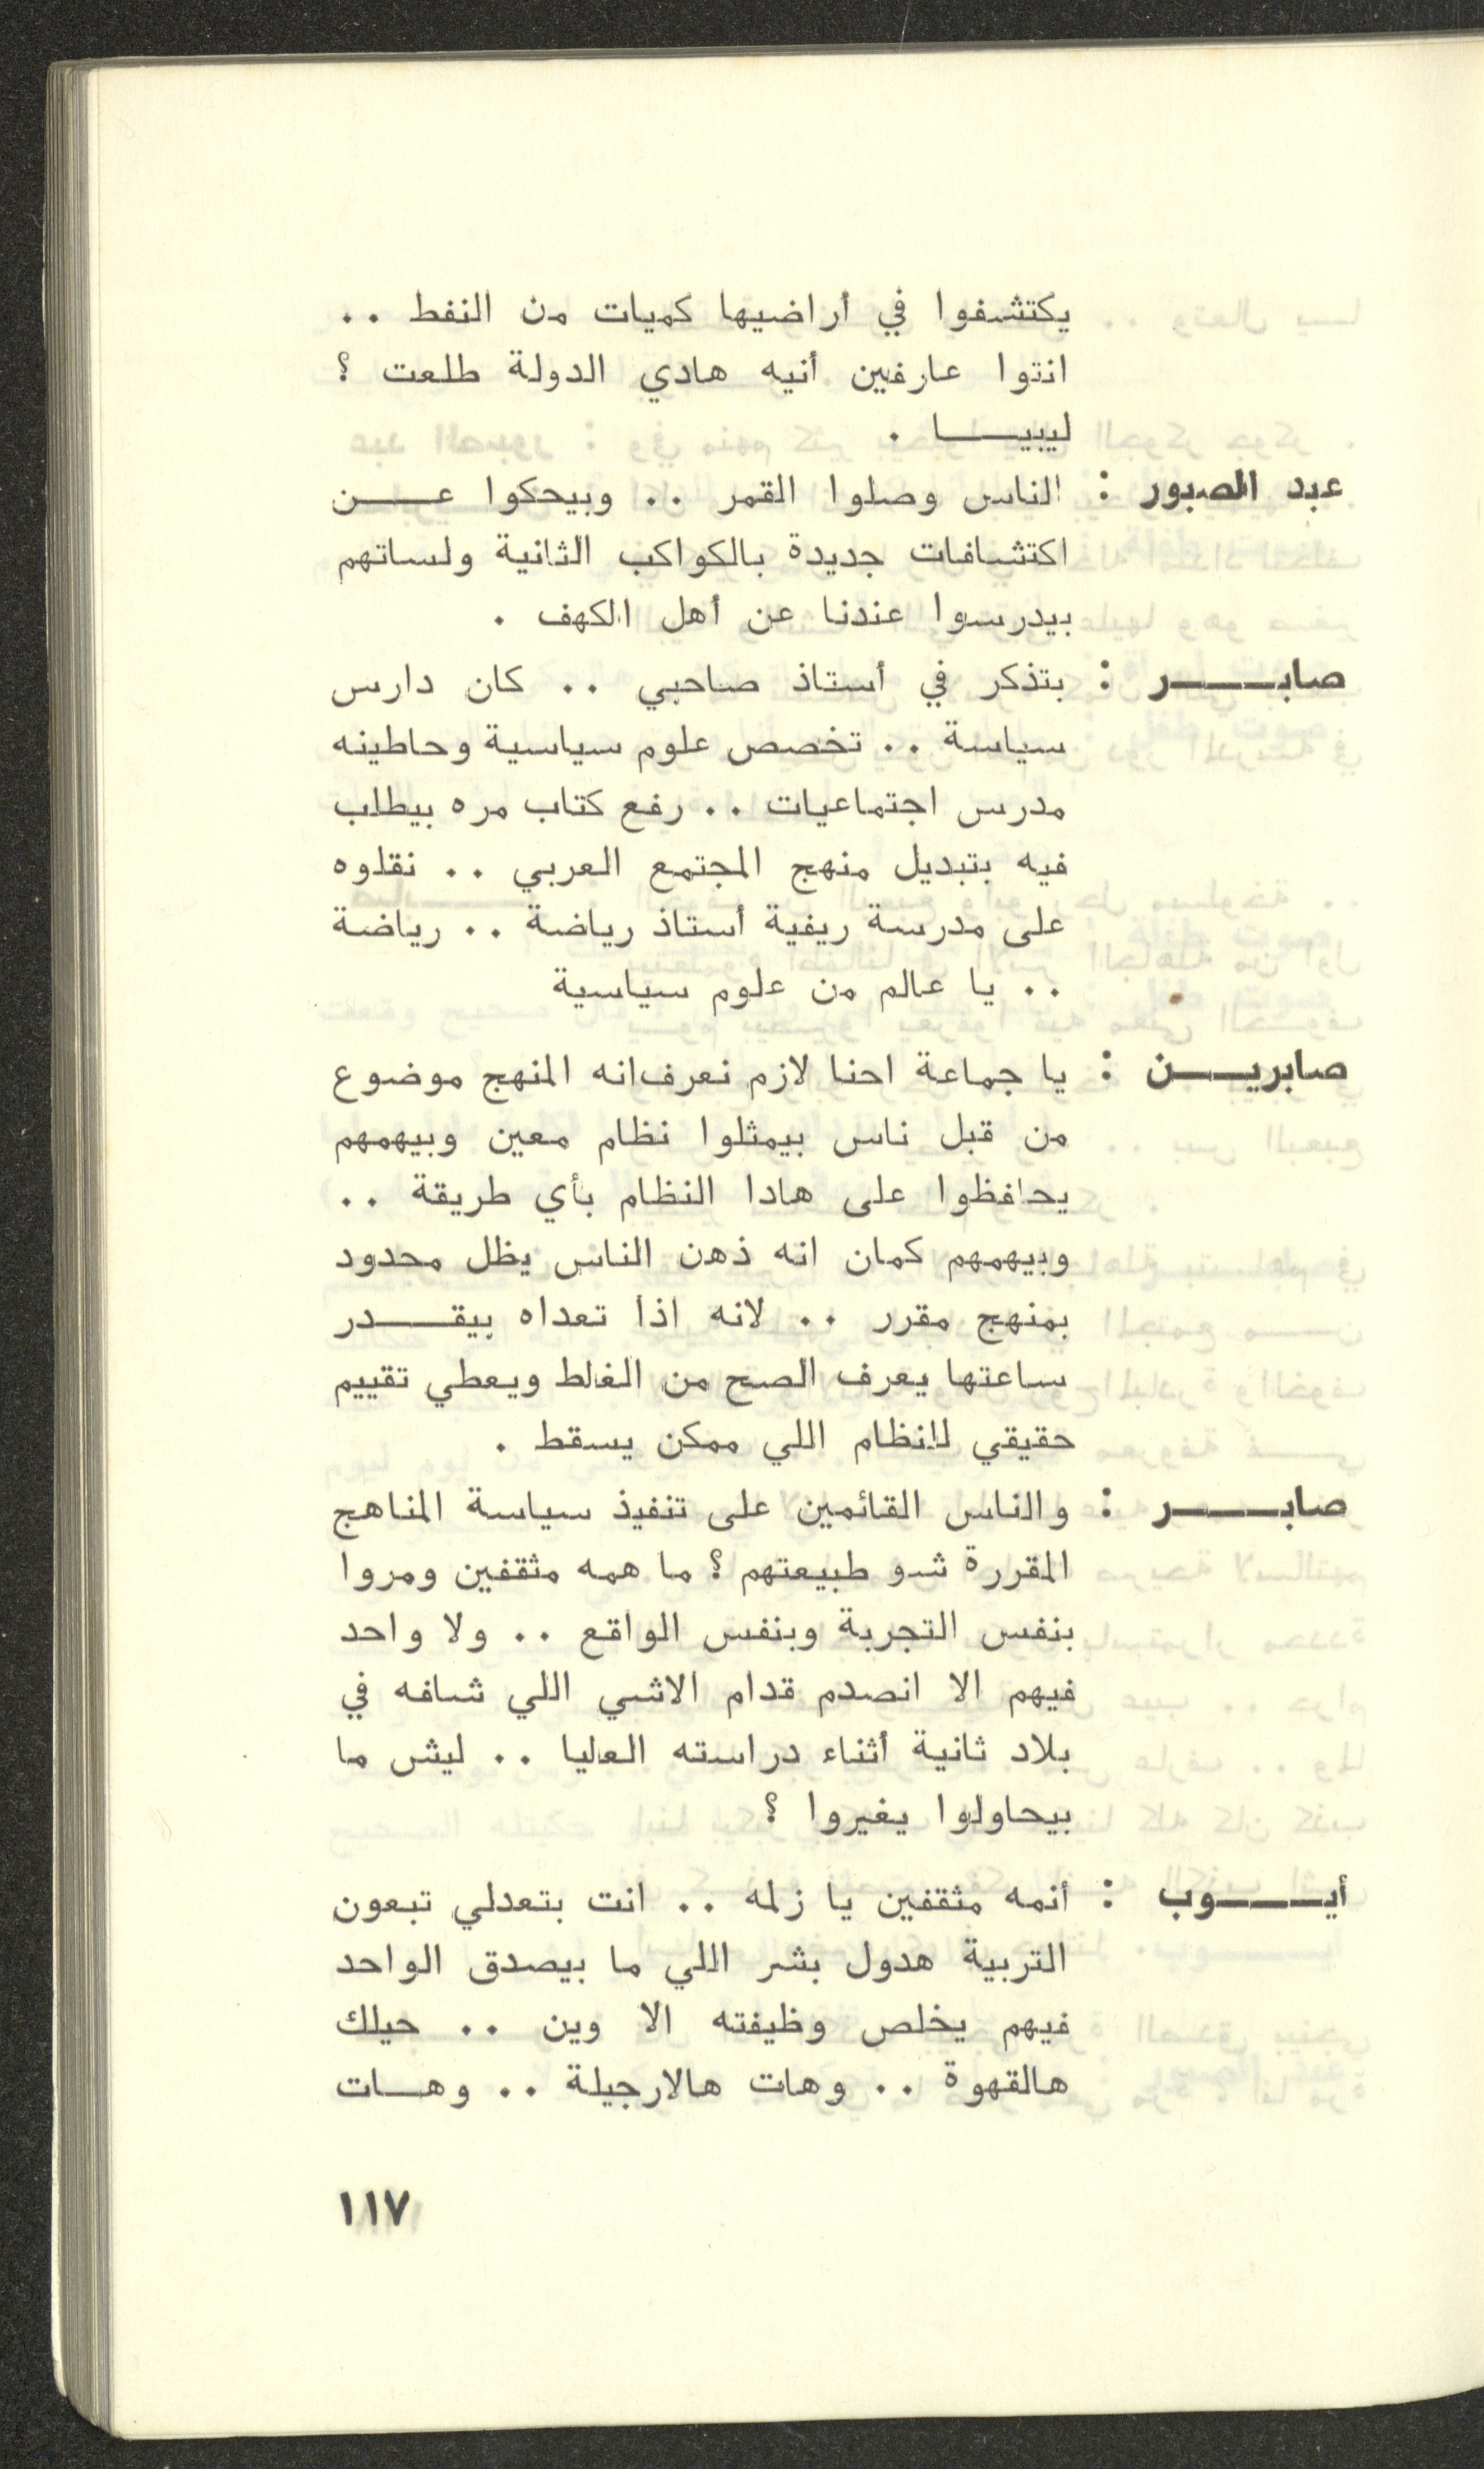 يكتشفوا في أراضيها كميات من النفط ..
انتوا عارفين أنيه هادي الدولة طلعت ؟
ليبيــا .
عبد الصبور : الناس وصلوا القمر .. وبيحكوا عــن
اكتشافات جديدة بالكواكب الثانية ولساتهم
بيدرسوا عندنا عن أهل الكهف .
صابــر : بتذكر في أستاذ صاحبي .. كان دارس
سياسة .. تخصص علوم سياسية وحاطينه
مدرس اجتماعيات .. رفع كتاب مره بيطلب
فيه بتبديل منهج المجتمع العربي .. نقلوه
على مدرسة ريفية أستاذ رياضة .. رياضة
.. يا عالم من علوم سياسية
صابريــن : يا جماعة احنا لازم نعرف انه المنهج موضوع
من قبل ناس بيمثلوا نظام معين وبيهمهم
يحافظوا على هادا النظام بأي طريقة ..
وبيهمهم كمان انه ذهن الناس يظل محدود
بمنهج مقرر .. لانه اذا تعداه بيقــدر
ساعتها يعرف الصح من الغلط ويعطي تقييم
حقيقي للنظام اللي ممكن يسقط .
صابــر : والناس القائمين على تنفيذ سياسة المناهج
المقررة شو طبيعتهم ؟ ما همه مثقفين ومروا
بنفس التجربة وبنفس الواقع .. ولا واحد
فيهم الا انصدم قدام الاشي اللي شافه في
بلاد ثانية أثناء دراسته العليا .. ليش ما
بيحاولوا يغيروا ؟
أيــوب : أنمه مثقفين يا زلمه .. انت بتعدلي تبعون
التربية هدول بشر اللي ما بيصدق الواحد
فيهم يخلص وظيفته الا وين .. حيلك
هالقهوة .. وهات هالارجيلة .. وهــات
١١٧